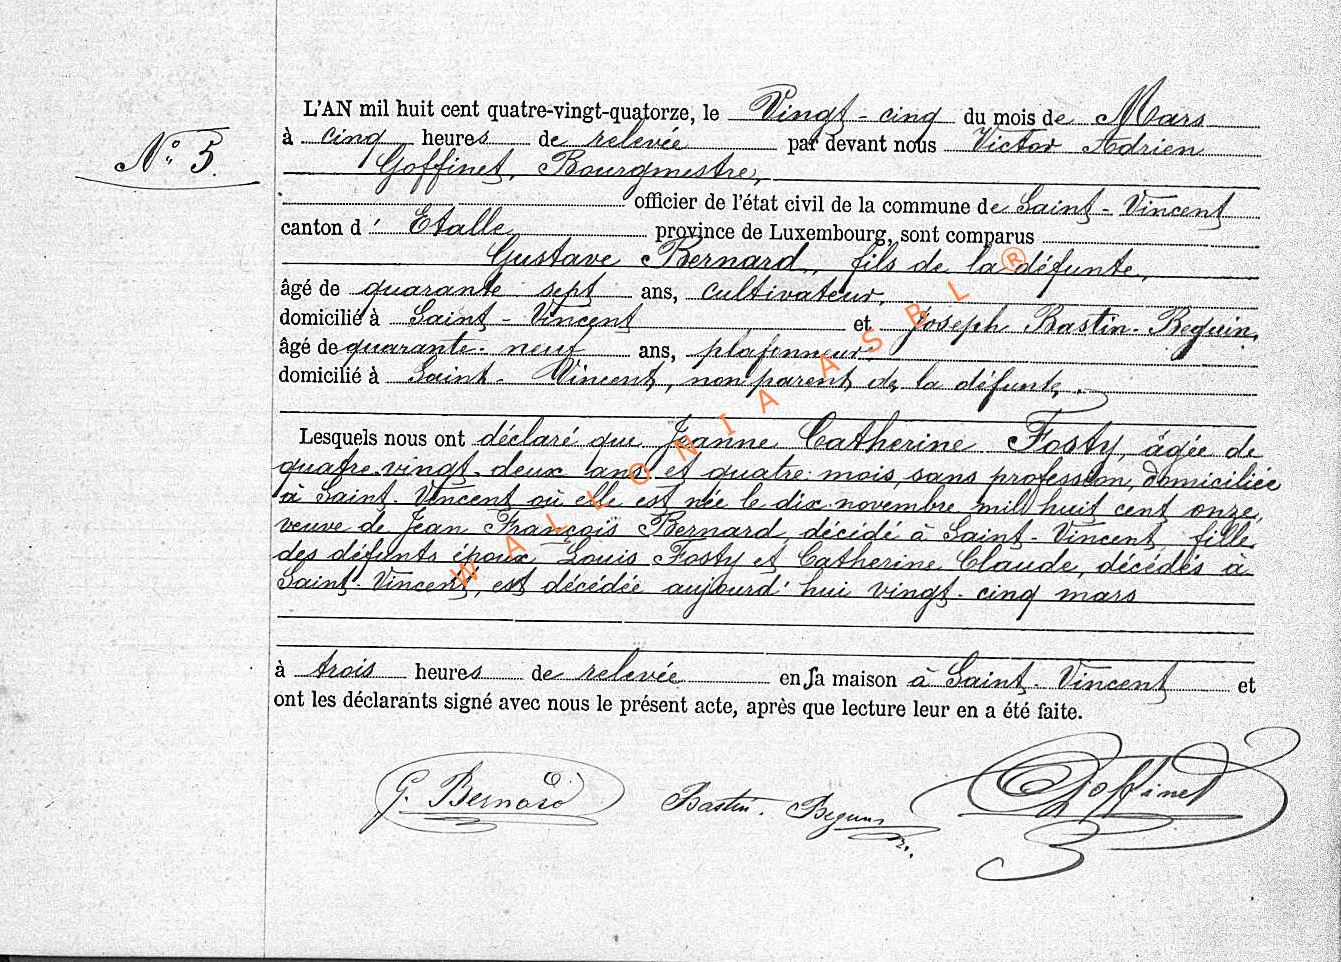 L'AN mil huit cent quatre-vingt-quatorze, le Vingt-cinq du mois de Mars
N° 5.
à cinq heures de relevée par devant nous Victor Adrien
Goffinet, Bourgmestre,
officier de l'état civil de la commune de Saint-Vincent
canton d' Etalle province de Luxembourg, sont comparus
Gustave Bernard, fils de la défunte,
âgé de quarante sept ans, cultivateur,
domicilié à Saint-Vincent et Joseph Bastin-Beguin,
âgé de quarante-neuf ans, plafonneur
domicilié à Saint-Vincent, non parent de la défunte,
Lesquels nous ont déclaré que Jeanne Catherine Fosty, âgée de
quatre-vingt-deux ans et quatre mois, sans profession, domiciliée
à Saint-Vincent où elle est née le dix novembre mil huit cent onze,
veuve de Jean François Bernard, décédé à Saint-Vincent, fille
des défunts époux Louis Fosty et Catherine Claude, décédés à
Saint-Vincent, est décédée aujourd'hui vingt-cinq mars
à trois heures de relevée en sa maison à Saint-Vincent et
ont les déclarants signé avec nous le présent acte, après que lecture leur en a été faite.
G. Bernard Bastin-Beguin Goffinet
WALLONIA ASBL ®